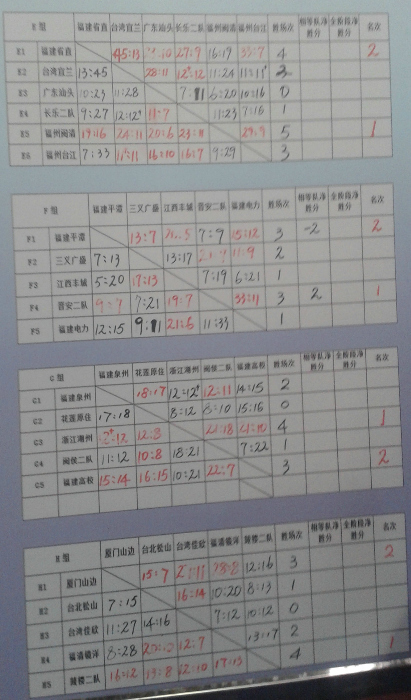 E组 福建省直 台湾宜兰 广东汕头 长乐二队 福州闽清 福州台江 胜场次 相等队净胜分 全阶段净胜分 名次
E1 福建省直 45:13 27:9 16:19 33:7 4 2
E2 台湾宜兰 13:45 28:11 12+:12 11:24 11:11+ 3
E3 广东汕头 10:23 11:28 7:11 6:20 10:16 0
E4 长乐二队 9:27 12:12+ 11:7 11:23 7:16 1
E5 福州闽清 19:16 24:11 20:6 23:11 29:9 5 1
E6 福州台江 7:33 11+:11 16:10 16:7 9:29 3
F组 福建平潭 三义广盛 江西丰城 晋安二队 福建电力 胜场次 相等队净胜分 全阶段净胜分 名次
F1 福建平潭 13:7 20:5 7:9 15:12 3 -2 2
F2 三义广盛 7:13 13:17 21:7 11:9 2
F3 江西丰城 5:20 17:13 7:19 6:21 1
F4 晋安二队 9:7 7:21 19:7 33:11 3 2 1
F5 福建电力 12:15 9:11 21:6 11:33 1
G组 福建泉州 花莲原住 浙江湖州 闽侯二队 福建高校 胜场次 相等队净胜分 全阶段净胜分 名次
G1 福建泉州 18:17 12:12+ 12:11 14:15 2
G2 花莲原住 17:18 8:12 8:10 15:16 0
G3 浙江湖州 12+:12 12:8 21:18 21:10 4 1
G4 闽侯二队 11:12 10:8 18:21 7:22 1
G5 福建高校 15:14 16:15 10:21 22:7 3 2
H组 厦门山边 台北松山 台湾佳欣 福清镜洋 鼓楼二队 胜场次 相等队净胜分 全阶段净胜分 名次
H1 厦门山边 15:7 27:11 28:8 12:16 3 2
H2 台北松山 7:15 16:14 10:20 8:13 1
台湾佳欣 11:27 14:16 7:12 10:12 0
H4 福清镜洋 8:28 20:10 12:7 13:17 2
H5 鼓楼二队 16:12 13:8 12:10 17:13 4 1